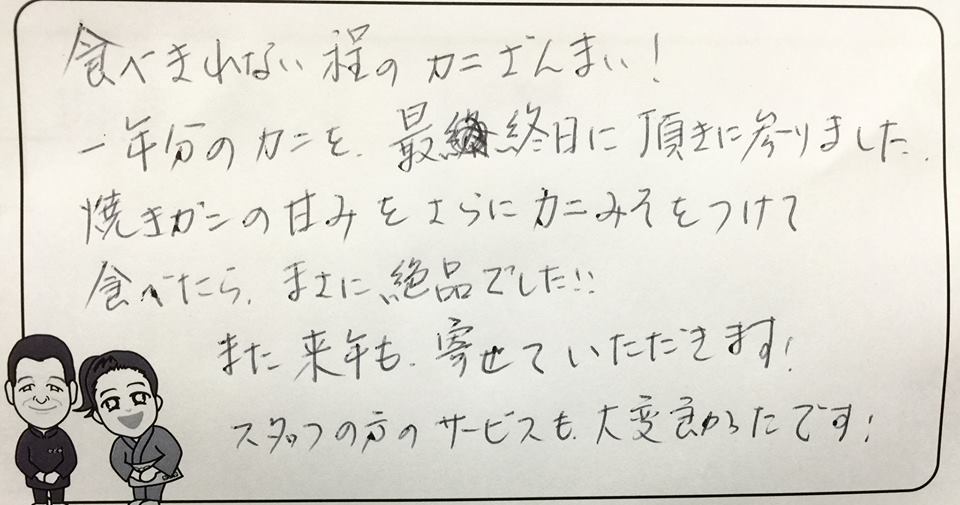 食べきれない程のカニざんまい!
一年分のカニを、最終日に頂きに参りました。
焼きガニの甘みをさらにカニみそをつけて
食べたら、まさに絶品でした!!
また来年も、寄せていただきます!
スタッフの方のサービスも、大変良かったです!